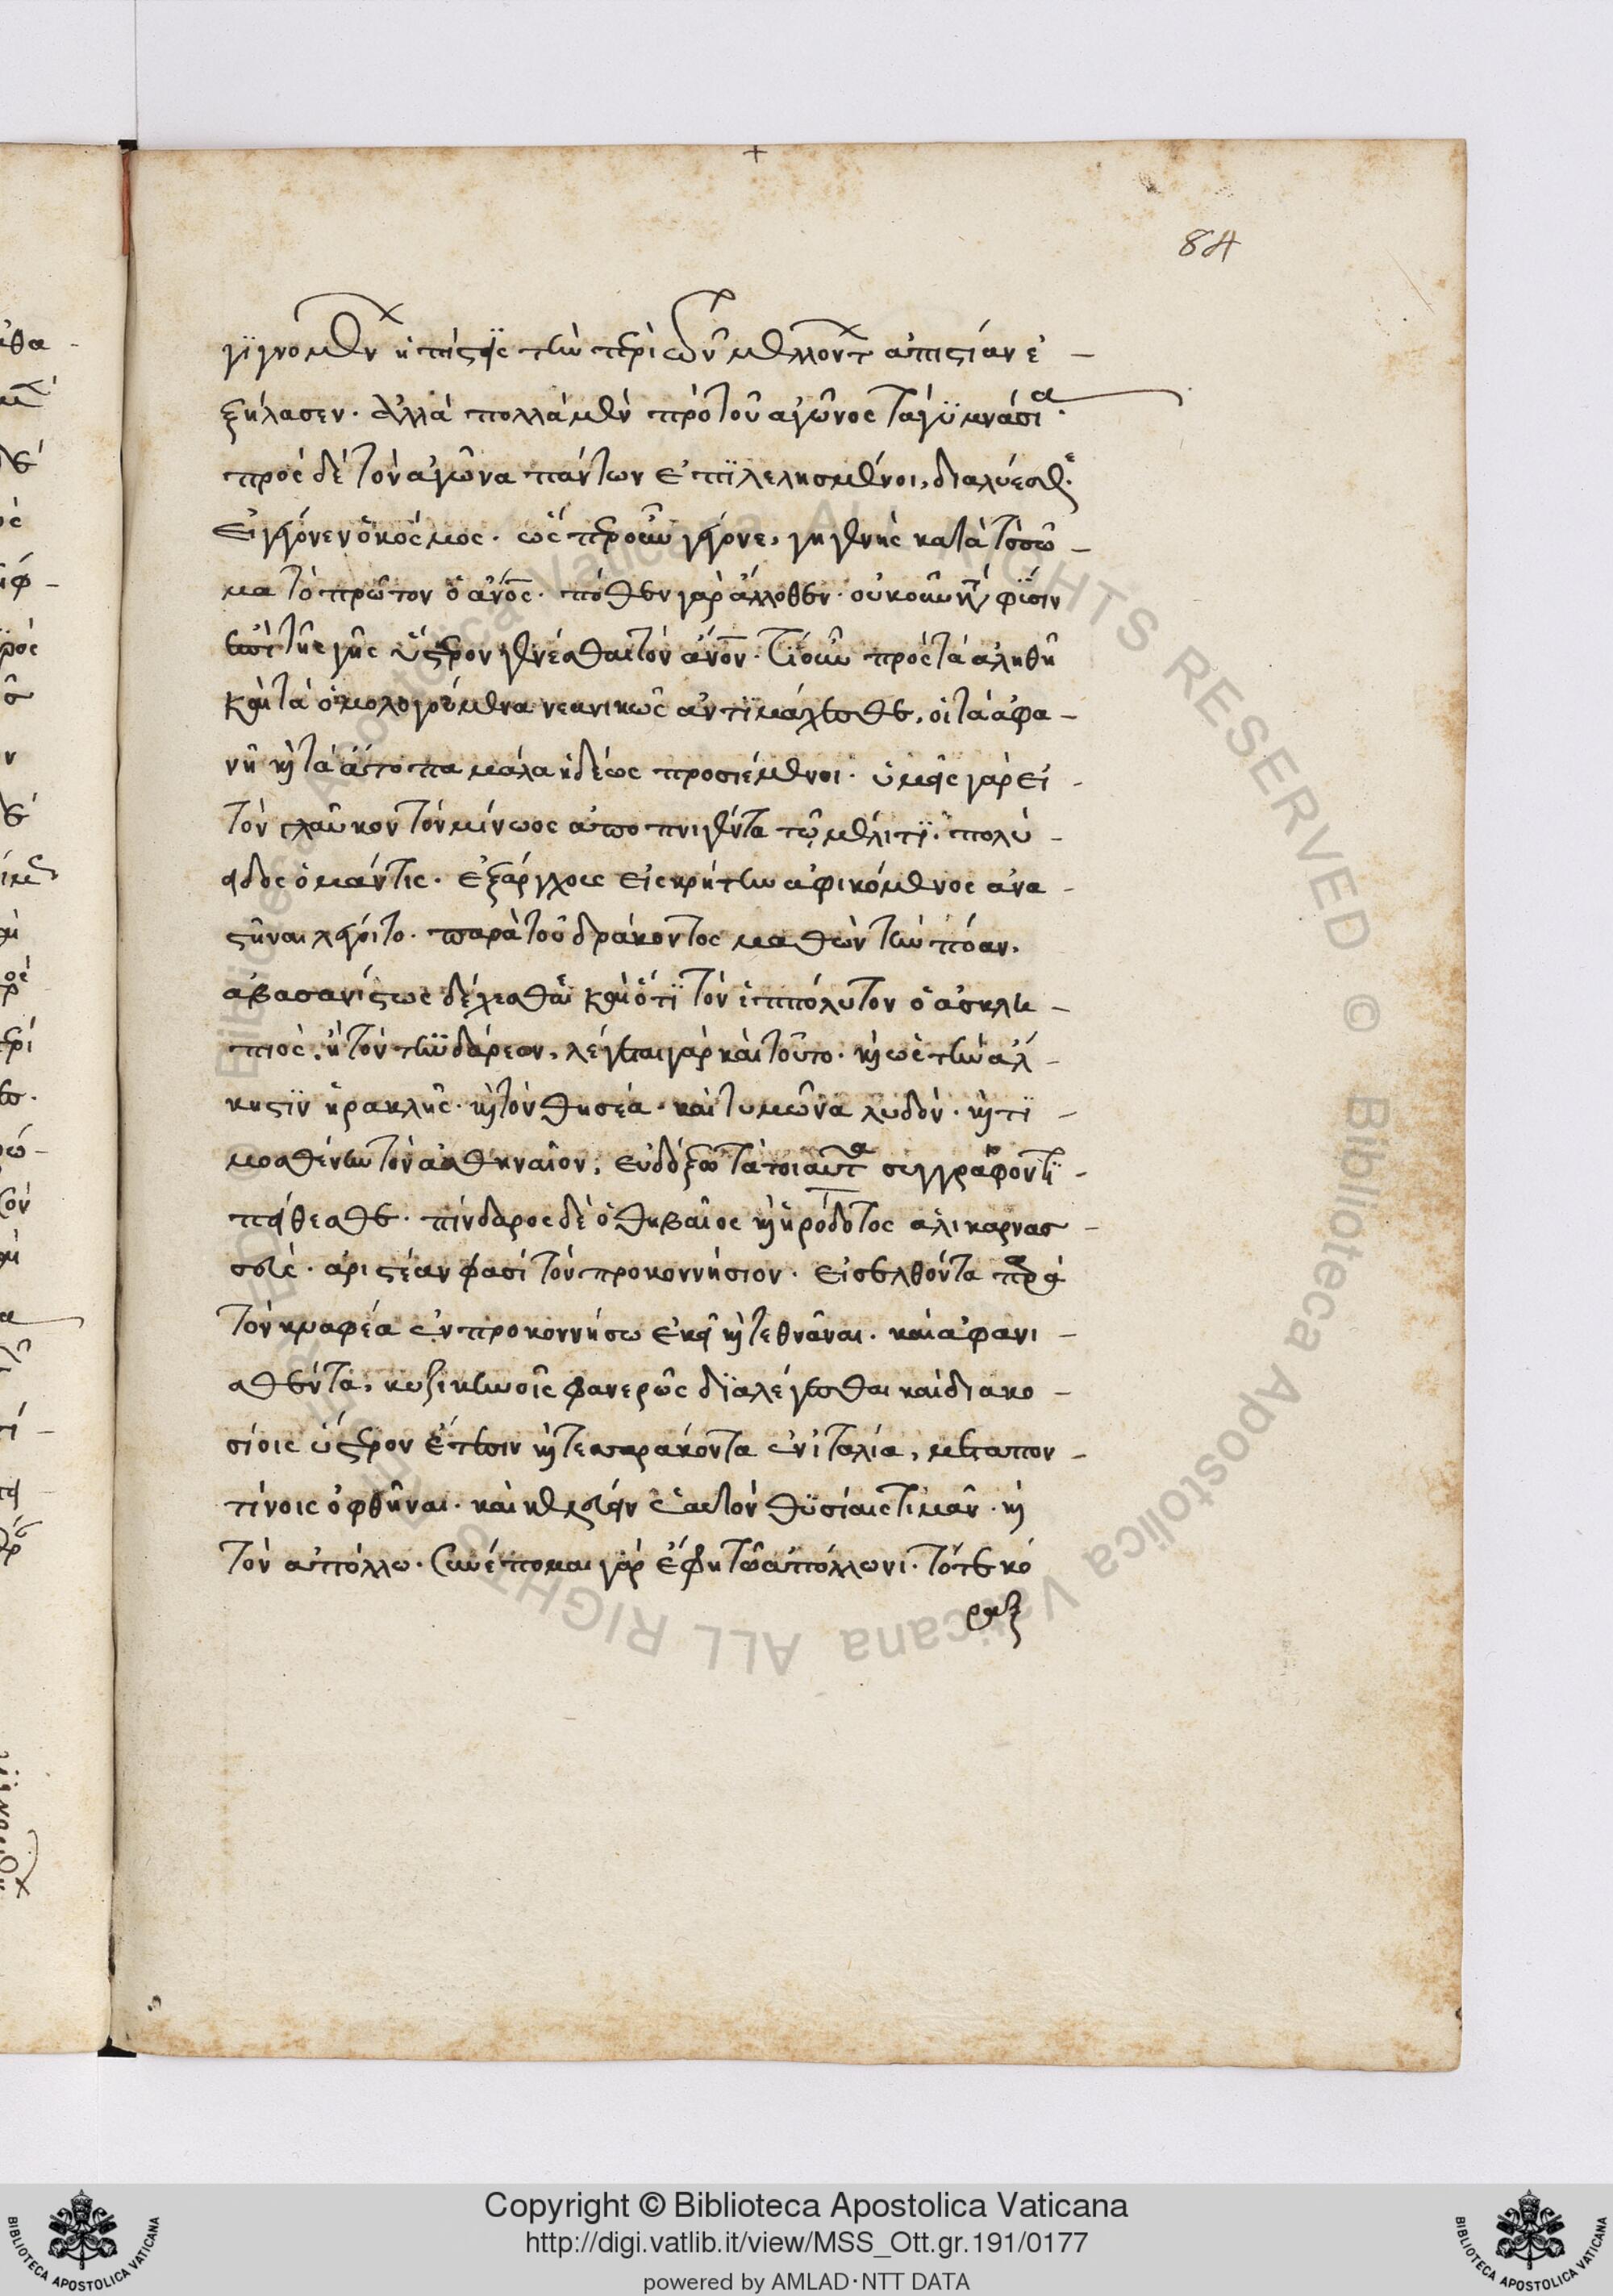 84
γϊγνομένων ἡ πίστις τὴν περὶ τῶν μελλόντων ἀπιστίαν ἐ-
ξήλασεν. ἀλλὰ πολλὰ μὲν πρὸ τοῦ ἀγῶνος τὰ γϋμνάσια.
πρὸς δὲ τὸν ἀγῶνα πάντων ἐπϊλελησμένοι, διαλύεσθε.
εἰ γέγονεν ὁ κόσμος. ὥσπερ οὖν γέγονε, γηγενὴς κατὰ τὸ σῶ-
μα τὸ πρῶτον ὁ ἄνος. πόθεν γὰρ ἄλλοθεν. οὐκοῦν φϋσιν
τῆς γῆς ὕστερον γενέσθαι τὸν ἄνον. τί οὖν πρὸς τὰ ἀληθῆ
καὶ τὰ ὁμολογούμενα νεανικῶς ἀντϊμάχεσθε, οἱ τὰ ἀφα-
νῆ καὶ τὰ ἄτοπα μάλα ἡδέως προσιέμενοι. ὑμεῖς γὰρ εἰ-
τὸν γλαῦκον τὸν μίνωος ἀποπνιγέντα τῷ μέλιτϊ. πολύ-
ειδος ὁ μάντις. ἐξ ἄργχους εἰς κρήτην ἀφικόμενος ἀνα-
στῆναι λέγοιτο. παρὰ τοῦ δράκοντος μαθὼν τὴν πόαν.
ἀβασανίστως δέχεσθαι καὶ ὅτϊ τὸν ἱππόλυτον ὁ ἀσκλη-
πιός. ἢ τὸν τυϋδάρεων. λέγεται γὰρ καὶ τοῦτο. καὶ ὡς τὴν ἀλ-
κηστϊν ἡρακλῆς. καὶ τὸν θησέα. καὶ τυμῶνα λυδόν. καὶ τϊ-
μοσθένην τὸν ἀθηναῖον, εὐδόξω τὰ τοιαῦτα συγγράφοντϊ-
πείθεσθε. πίνδαρος δὲ ὁ θηβαῖος καὶ ἡρόδοτος ἁλικαρνασ-
σεύς. ἀριστέαν φασὶ τὸν προκοννήσιον. εἰσελθόντα παρὰ
τὸν κναφέα ἐν προκοννήσω ἐκεῖ καὶ τεθνᾶναι. καὶ ἀφανι-
σθέντα, κυζικηνοῖς φανερῶς δϊαλέγεσθαι καὶ διακο-
σίοις ὕστερον ἔτεσιν καὶ τεσσαράκοντα ἐν ἰταλία, μεταπον-
τίνοις ὀφθῆναι. καὶ κελεύειν ἑαυτὸν θϋσίαις τιμᾶν. καὶ
τὸν ἀπόλλω. συνέπομαι γὰρ ἔφη τῶ ἀπόλλωνι. τότε κό
ραξ
Copyright © Biblioteca Apostolica Vaticana
http://digi.vatlib.it/view/MSS_Ott.gr.191/0177
powered by AMLAD·NTT DATA